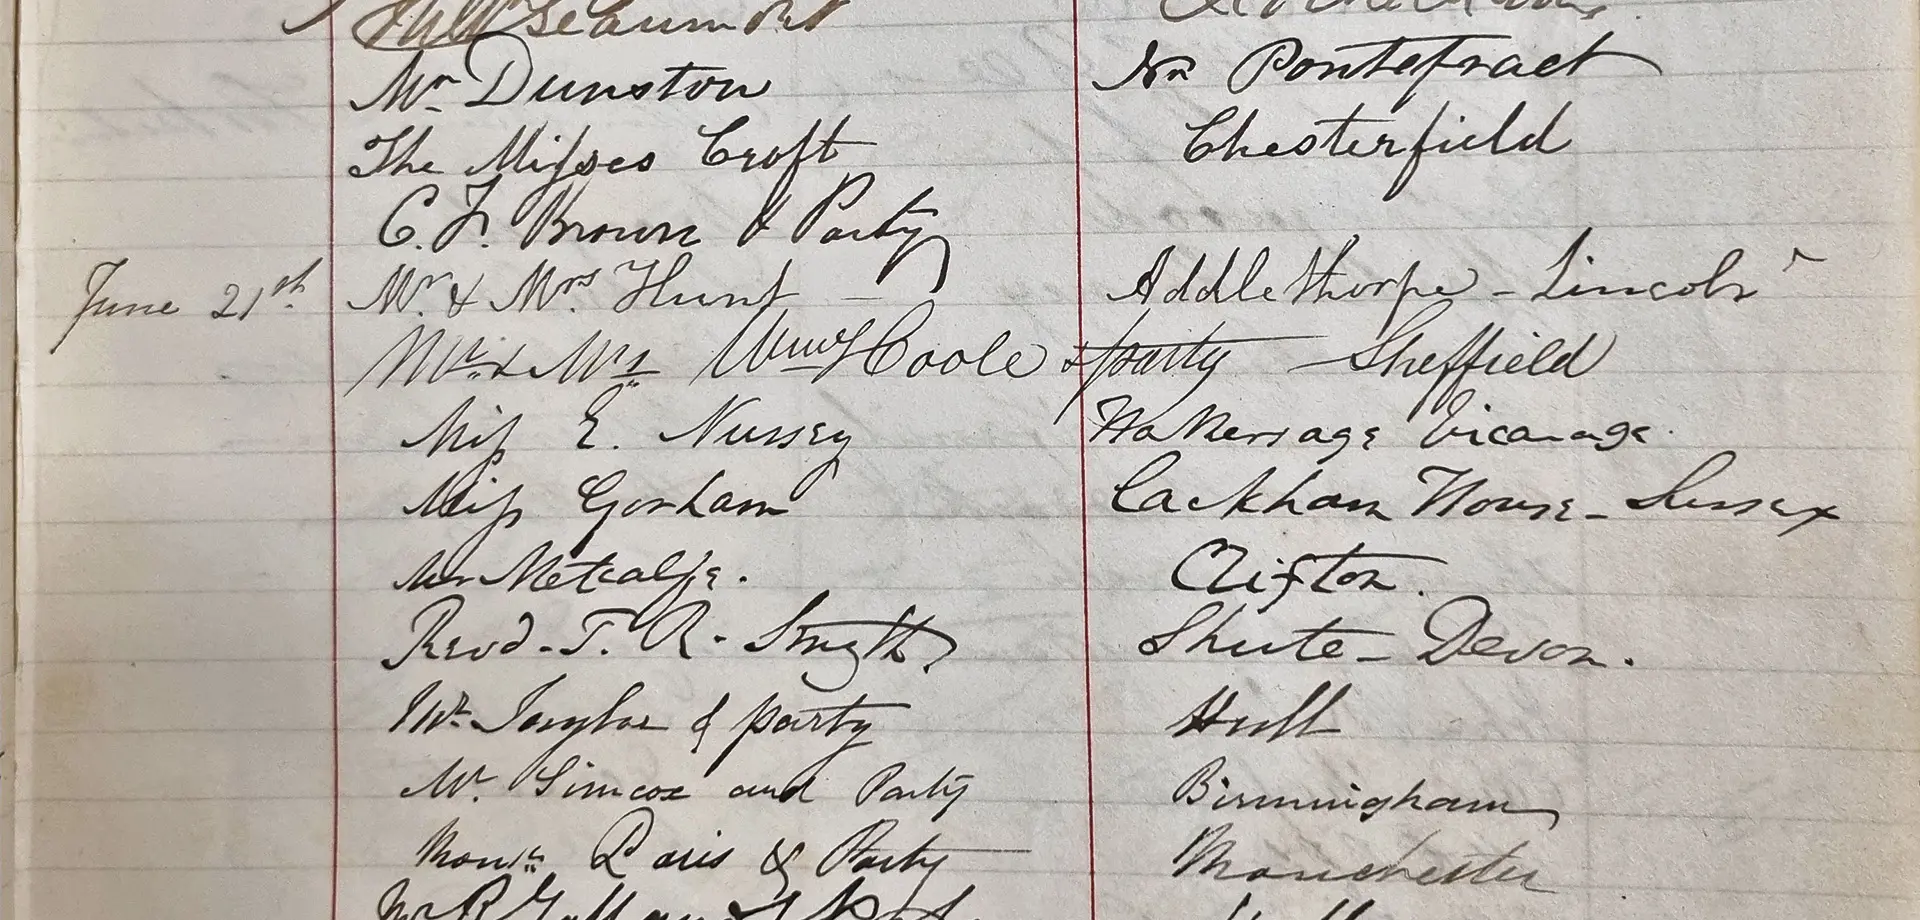 Beaumont
Mr Dunston Nr Pontefract
The Misses Croft Chesterfield
C. F. Brown & Party
June 21st Mr & Mrs Hunt - Addlethorpe - Lincoln
Mr & Mrs Wm Coole & party - Sheffield
Miss E. Nussey Vicarage
Miss Gorham Cackham House - Sussex
Mr Metcalfe. Clifton.
Revd - T. R. Smyth Shute - Devon.
Mr Taylor & party Hull
Mr. Simcox and Party Birmingham
Monsr & Party Manchester
Mr R